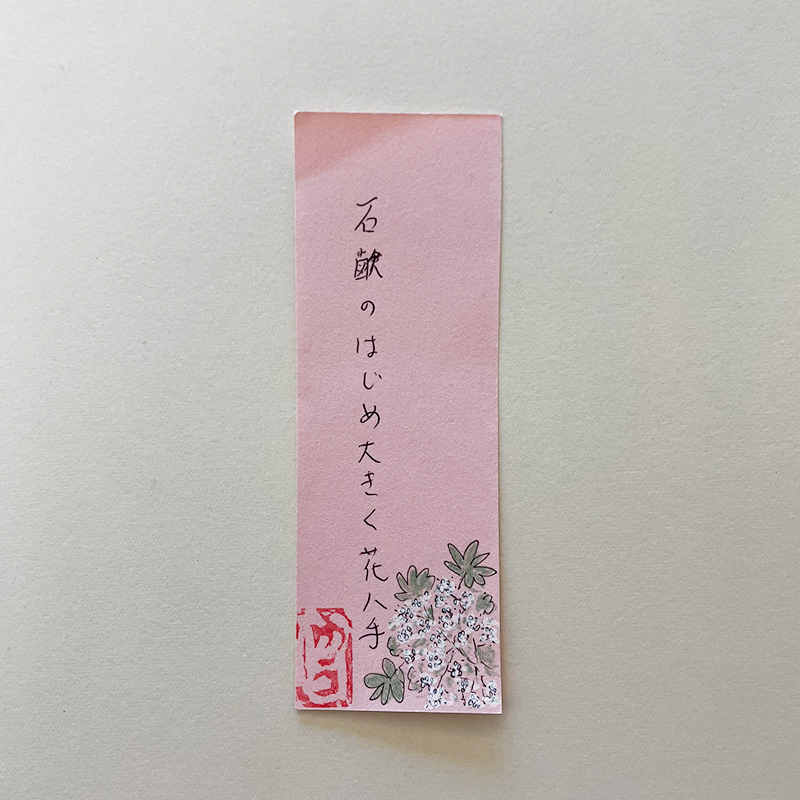 石鹸のはじめ大きく花八手